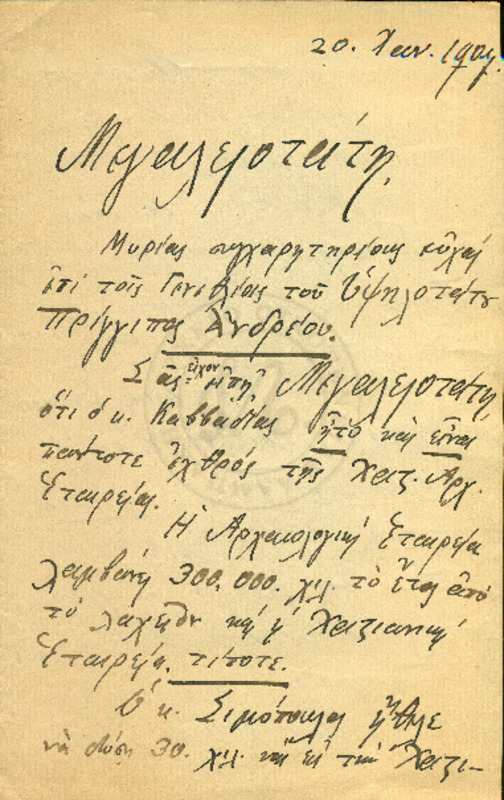 20. Ιαν. 1904.
Μεγαλειοτάτη,
Μυρίας συγχαρητηρίους εὐχάς
ἐπὶ τοῖς Γενεθλίοις τοῦ Ὑψηλοτάτου
Πρίγγιπος Ἀνδρέου.
Σᾶς εἶχον εἴπῃ Μεγαλειοτάτη,
ὅτι ὁ κ. Καββαδίας ἦτο καὶ εἶναι
πάντοτε ἐχθρὸς τῆς Χριστ. Αρχ.
Ἑταιρείας.
Ἡ Ἀρχαιολογικὴ Ἑταιρεία
λαμβάνει 300.000. χιλ. τὸ ἔτος ἀπὸ
τὸ λαχεῖον καὶ ἡ Χριστιανικὴ
Ἑταιρεία. τίποτε.
Ὁ κ. Σιμόπουλος ἤθελε
νὰ δώσῃ 30. χιλ. καὶ εἰς τὴν Χριστι-